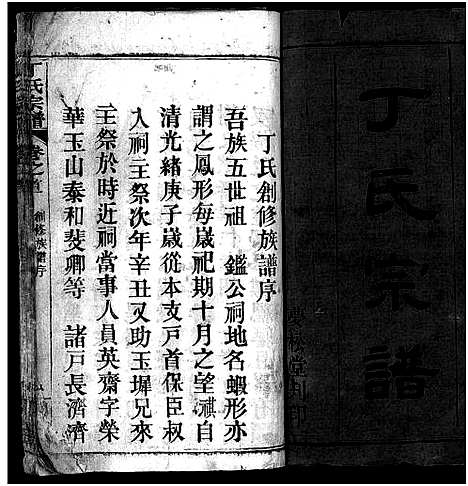 丁氏宗譜
丁氏創修族譜序
吾族五世祖 鑑公祠地名蝦形亦
謂之鳳形每歲祀期十月之望祺自
清光緒庚子歲從本支戶首保臣叔
入祠主祭次年辛丑又助玉墀兄來
主祭於時近祠當事人員英齋字榮
華玉山秦和斐卿等 諸戶長濟濟
丁氏宗譜 卷之首 創修族譜序